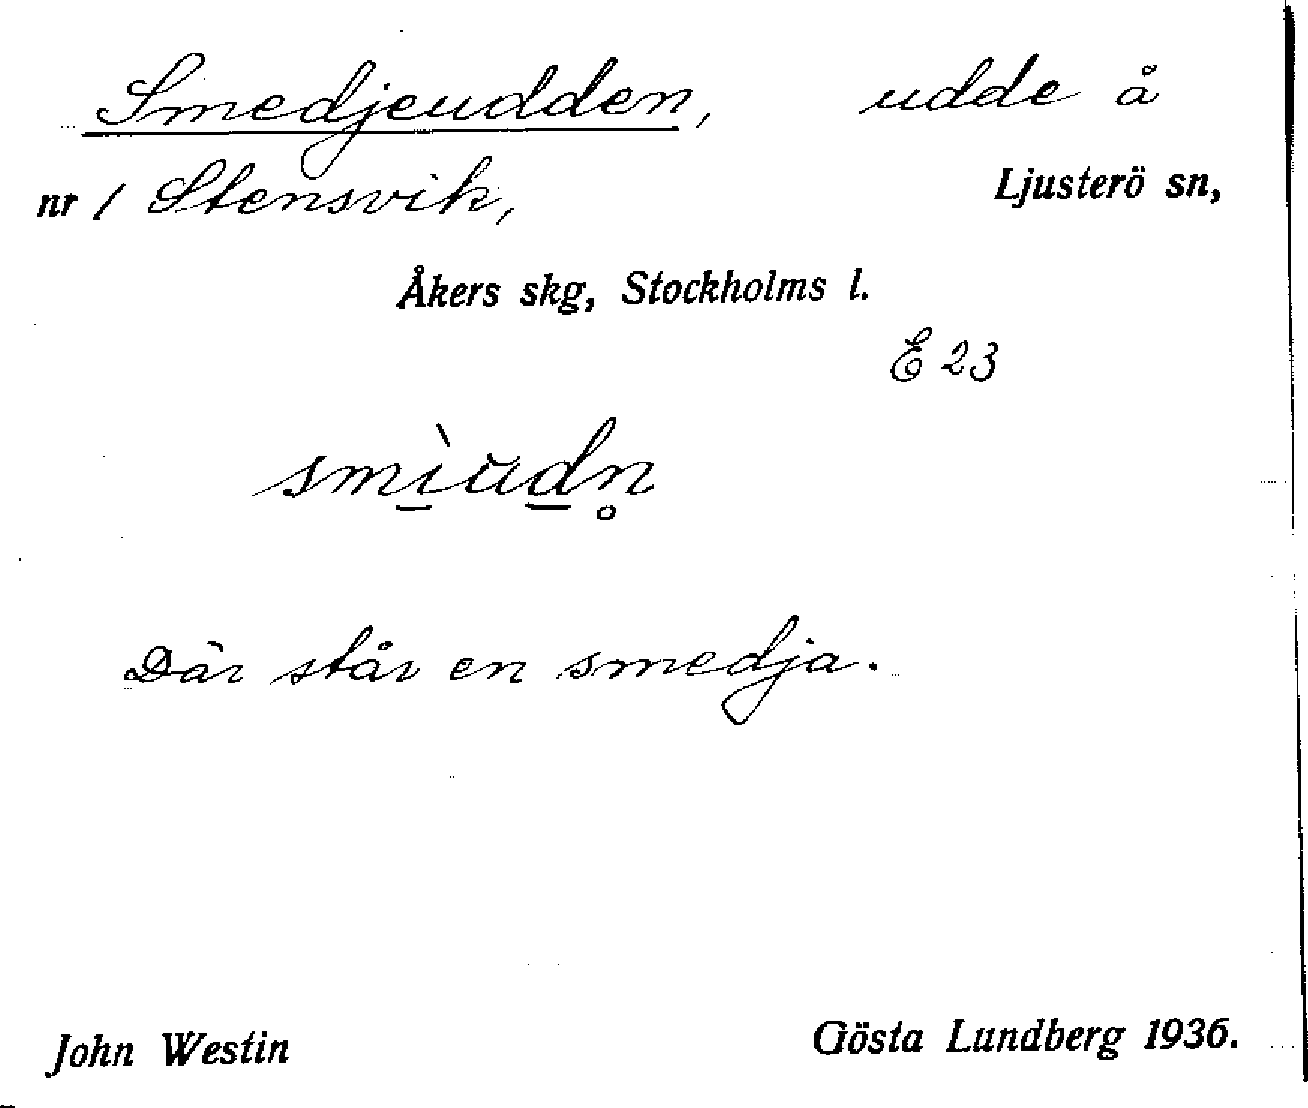 Smedjeudden, udde å
nr 1 Stensvik, Ljusterö sn,
Åkers skg, Stockholms l.
E 23
smì̲ud̲n̥
Där står en smedja.
John Westin Gösta Lundberg 1936.